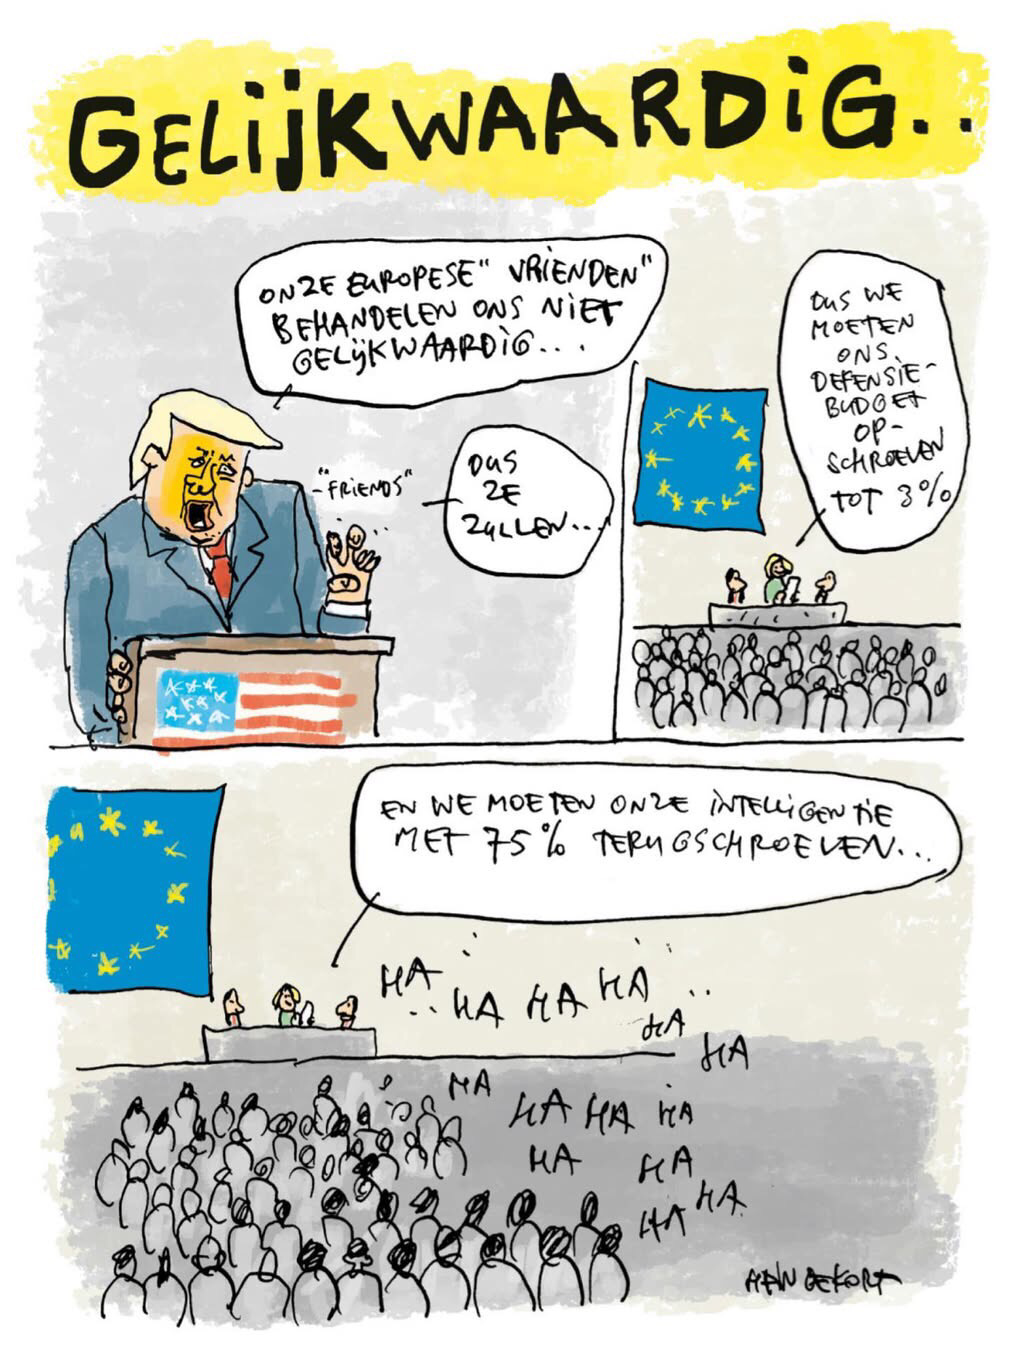 GELIJKWAARDIG..
ONZE EUROPESE "VRIENDEN"
BEHANDELEN ONS NIET
GELIJKWAARDIG....
"FRIENDS"
DUS
ZE
ZULLEN...
DUS WE
MOETEN
ONS
DEFENSIE-
BUDGET
OP-
SCHROEVEN
TOT 3%
EN WE MOETEN ONZE INTELLIGENTIE
MET 75% TERUGSCHROEVEN...
HA
HA HA HA
HA
HA
HA
HA HA HA
HA
HA
HA
HA
HEIN DE KORT